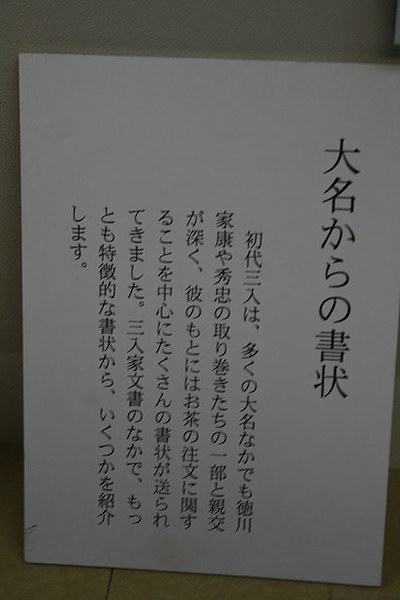 大名からの書状
初代三入は、多くの大名なかでも徳川
家康や秀忠の取り巻きたちの一部と親交
が深く、彼のもとにはお茶の注文に関す
ることを中心にたくさんの書状が送られ
てきました。三入家文書のなかで、もっ
とも特徴的な書状から、いくつかを紹介
します。